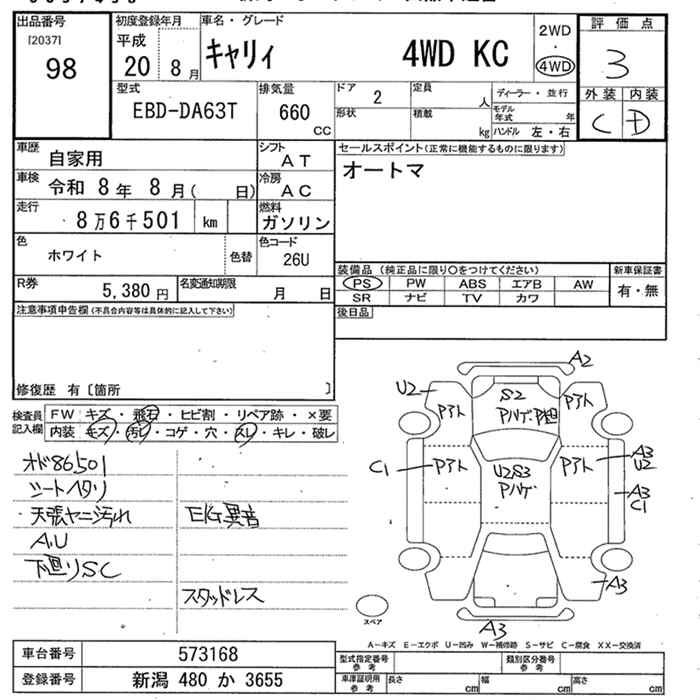 出品番号
[2037]
98
初度登録年月
平成
20 8月
車名・グレード
キャリィ 4WD KC
2WD
・
4WD
評価点
3
外装 内装
C D
型式
EBD-DA63T
排気量
660
cc
ドア 2
定員 人
ディーラー・並行
形状
積載 kg
モデル年式 年
ハンドル 左・右
車歴
自家用
シフト
AT
セールスポイント(正常に機能するものに限ります)
オートマ
車検
令和 8年 8月( 日)
冷房
AC
走行
8万6千501 km
燃料
ガソリン
色
ホワイト
色替
色コード
26U
装備品(純正品に限り○をつけてください)
新車保証書
PS PW ABS エアB AW
有・無
SR ナビ TV カワ
R券
5,380 円
名変通知期限
月 日
後日品
注意事項申告欄(不具合内容等は具体的に記入して下さい)
修復歴 有〔箇所 〕
検査員
記入欄
FW キズ・飛石・ヒビ割・リペア跡・×要
内装 キズ・汚レ・コゲ・穴・スレ・キレ・破レ
オド86501
シートヘタリ
天張ヤニ汚れ E/G異音
A,U
下廻りSC
スタッドレス
A2
U2
Pアト
S2
Pハゲ
Pアト
C1
Pアト
U2S3
Pハゲ
Pアト
A3
U2
A3
C1
A3
A3
スペア
A-キズ E-エクボ U-凹み W-補修跡 S-サビ C-腐食 XX-交換済
車台番号
573168
型式指定番号
参考
類別区分番号
参考
登録番号
新潟 480 か 3655
車庫証明用
参考
長さ cm
幅 cm
高さ cm